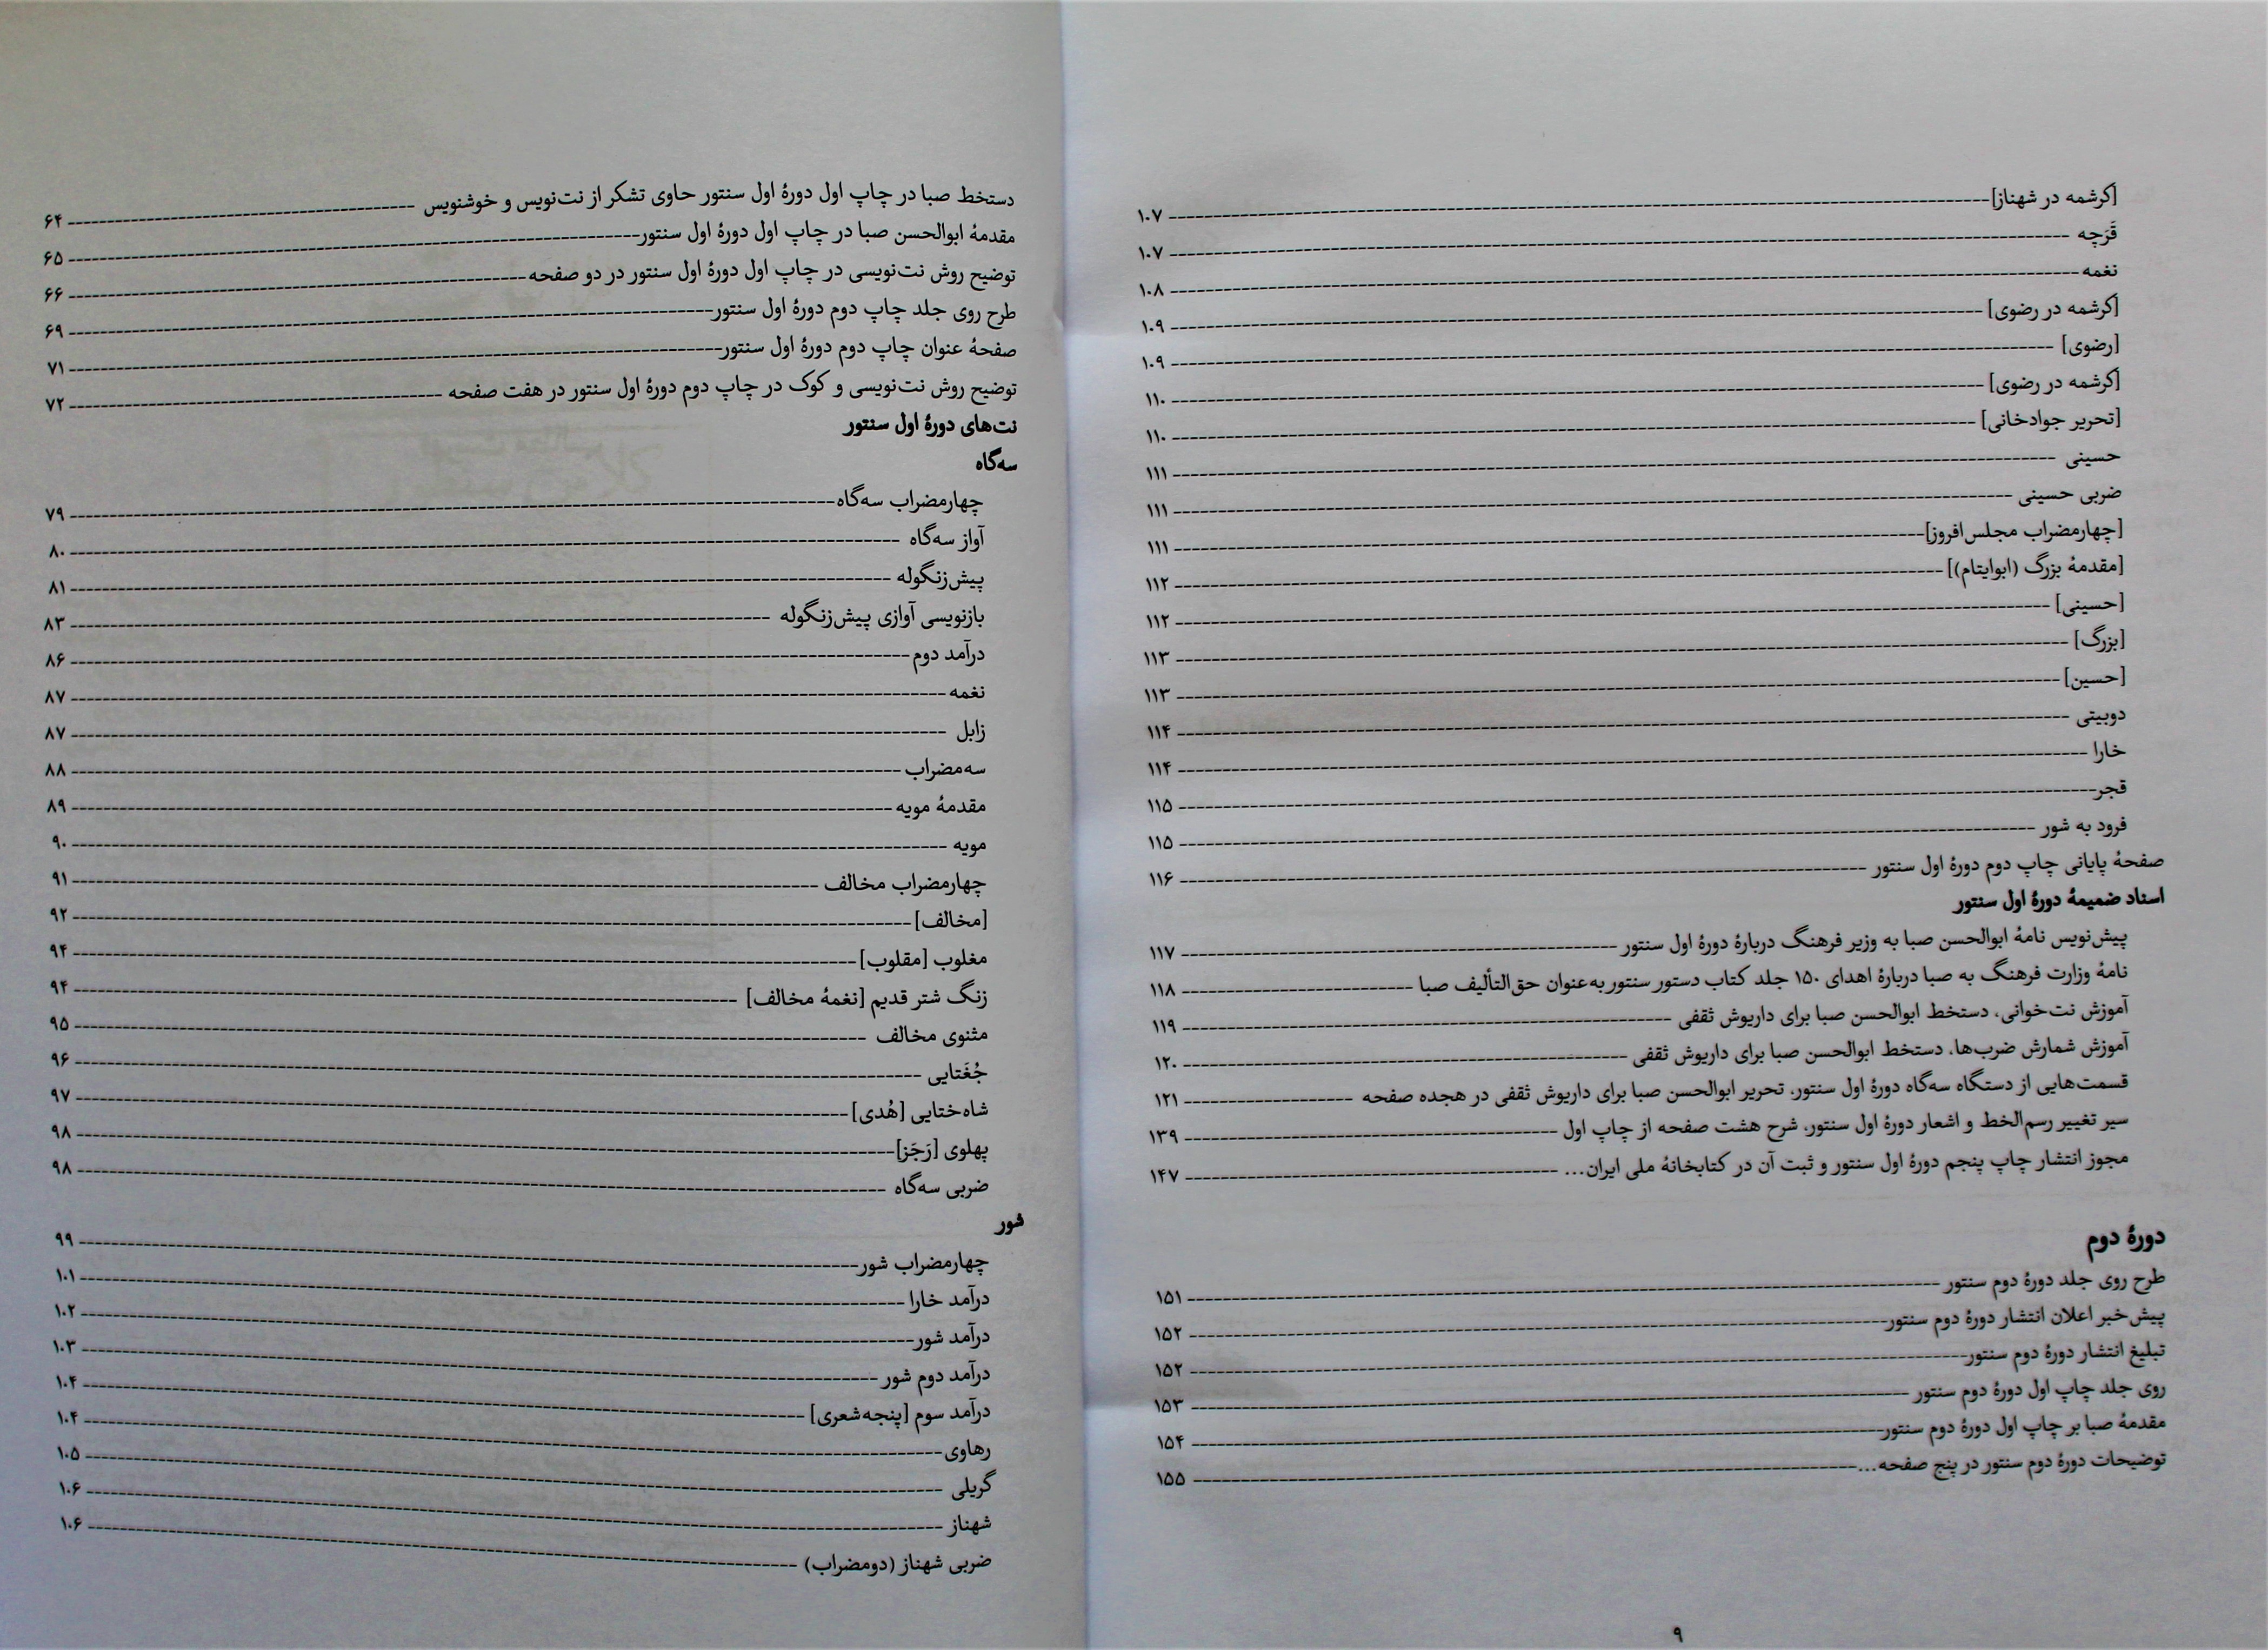 دستخط صبا در چاپ اول دورۀ اول سنتور حاوی تشکر از نت‌نویس و خوشنویس ---------- ۶۴
مقدمۀ ابوالحسن صبا در چاپ اول دورۀ اول سنتور ---------- ۶۵
توضیح روش نت‌نویسی در چاپ اول دورۀ اول سنتور در دو صفحه ---------- ۶۶
طرح روی جلد چاپ دوم دورۀ اول سنتور ---------- ۶۹
صفحۀ عنوان چاپ دوم دورۀ اول سنتور ---------- ۷۱
توضیح روش نت‌نویسی و کوک در چاپ دوم دورۀ اول سنتور در هفت صفحه ---------- ۷۲
نت‌های دورۀ اول سنتور
سه‌گاه
چهارمضراب سه‌گاه ---------- ۷۹
آواز سه‌گاه ---------- ۸۰
پیش‌زنگوله ---------- ۸۱
بازنویسی آوازی پیش‌زنگوله ---------- ۸۳
درآمد دوم ---------- ۸۶
نغمه ---------- ۸۷
زابل ---------- ۸۷
سه‌مضراب ---------- ۸۸
مقدمۀ مویه ---------- ۸۹
مویه ---------- ۹۰
چهارمضراب مخالف ---------- ۹۱
[مخالف] ---------- ۹۲
مغلوب [مقلوب] ---------- ۹۴
زنگ شتر قدیم [نغمۀ مخالف] ---------- ۹۴
مثنوی مخالف ---------- ۹۵
جُغَتایی ---------- ۹۶
شاه‌ختایی [هُدی] ---------- ۹۷
پهلوی [رَجَز] ---------- ۹۸
ضربی سه‌گاه ---------- ۹۸
شور
چهارمضراب شور ---------- ۹۹
درآمد خارا ---------- ۱۰۱
درآمد شور ---------- ۱۰۲
درآمد دوم شور ---------- ۱۰۳
درآمد سوم [پنجه‌شعری] ---------- ۱۰۴
رهاوی ---------- ۱۰۴
گریلی ---------- ۱۰۵
شهناز ---------- ۱۰۶
ضربی شهناز (دومضراب) ---------- ۱۰۶
[کرشمه در شهناز] ---------- ۱۰۷
قَرَچه ---------- ۱۰۷
نغمه ---------- ۱۰۸
[کرشمه در رضوی] ---------- ۱۰۹
[رضوی] ---------- ۱۰۹
[کرشمه در رضوی] ---------- ۱۱۰
[تحریر جوادخانی] ---------- ۱۱۰
حسینی ---------- ۱۱۱
ضربی حسینی ---------- ۱۱۱
[چهارمضراب مجلس‌افروز] ---------- ۱۱۱
[مقدمۀ بزرگ (ابوایتام)] ---------- ۱۱۲
[حسینی] ---------- ۱۱۲
[بزرگ] ---------- ۱۱۳
[حسین] ---------- ۱۱۳
دوبیتی ---------- ۱۱۴
خارا ---------- ۱۱۴
قجر ---------- ۱۱۵
فرود به شور ---------- ۱۱۵
صفحۀ پایانی چاپ دوم دورۀ اول سنتور ---------- ۱۱۶
اسناد ضمیمۀ دورۀ اول سنتور
پیش‌نویس نامۀ ابوالحسن صبا به وزیر فرهنگ دربارۀ دورۀ اول سنتور ---------- ۱۱۷
نامۀ وزارت فرهنگ به صبا دربارۀ اهدای ۱۵۰ جلد کتاب دستور سنتور به‌عنوان حق‌التألیف صبا ---------- ۱۱۸
آموزش نت‌خوانی، دستخط ابوالحسن صبا برای داریوش ثقفی ---------- ۱۱۹
آموزش شمارش ضرب‌ها، دستخط ابوالحسن صبا برای داریوش ثقفی ---------- ۱۲۰
قسمت‌هایی از دستگاه سه‌گاه دورۀ اول سنتور، تحریر ابوالحسن صبا برای داریوش ثقفی در هجده صفحه ---------- ۱۲۱
سیر تغییر رسم‌الخط و اشعار دورۀ اول سنتور، شرح هشت صفحه از چاپ اول ---------- ۱۳۹
مجوز انتشار چاپ پنجم دورۀ اول سنتور و ثبت آن در کتابخانۀ ملی ایران... ---------- ۱۴۷
دورۀ دوم
طرح روی جلد دورۀ دوم سنتور ---------- ۱۵۱
پیش‌خبر اعلان انتشار دورۀ دوم سنتور ---------- ۱۵۲
تبلیغ انتشار دورۀ دوم سنتور ---------- ۱۵۲
روی جلد چاپ اول دورۀ دوم سنتور ---------- ۱۵۳
مقدمۀ صبا بر چاپ اول دورۀ دوم سنتور ---------- ۱۵۴
توضیحات دورۀ دوم سنتور در پنج صفحه... ---------- ۱۵۵
۹